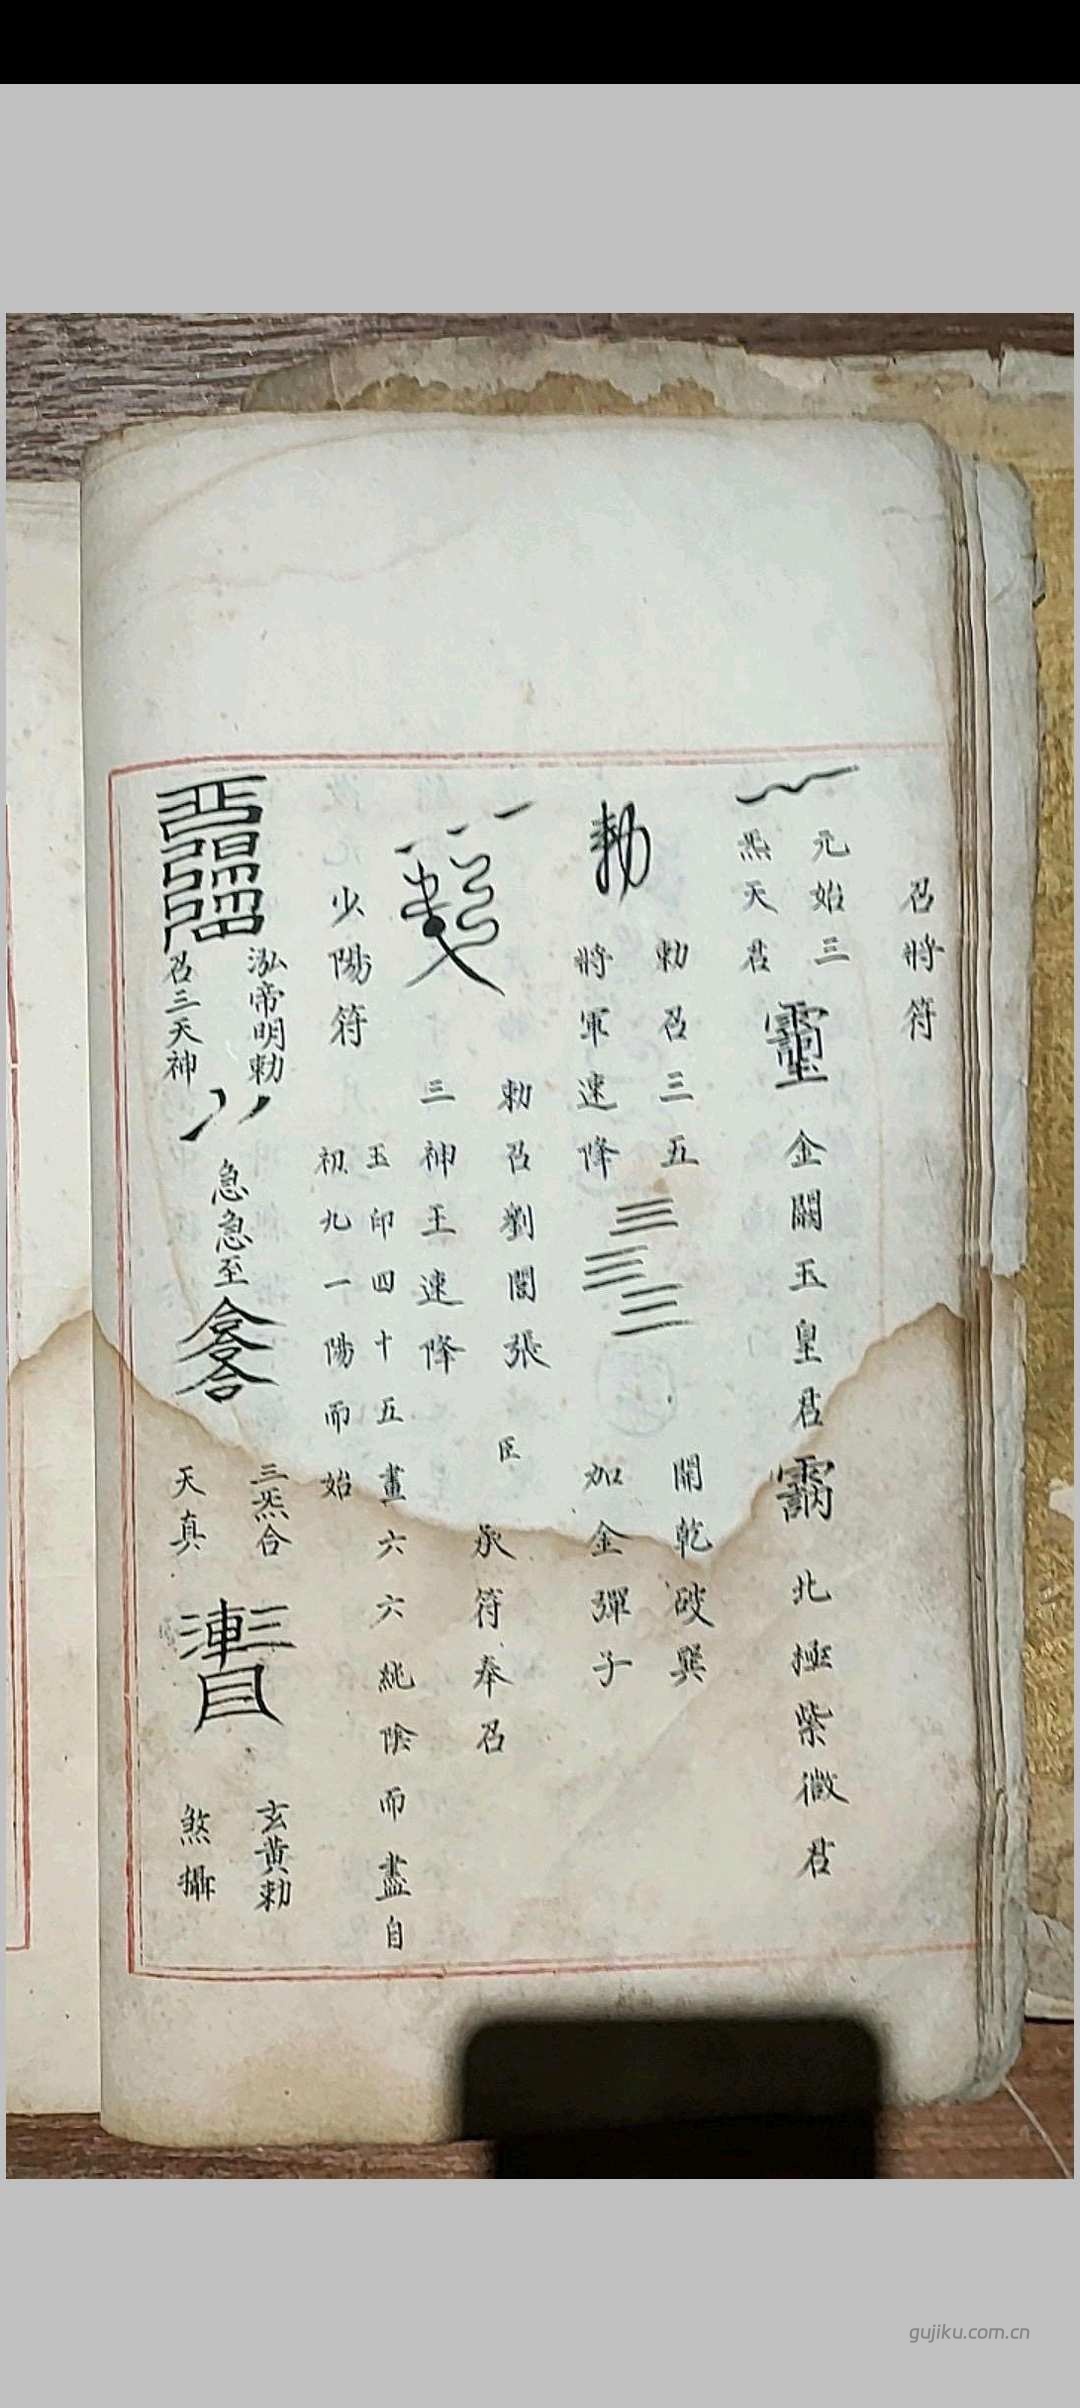 召將符
元始三
炁天君
金闕玉皇君
北極紫微君
勅
勅召三五
將軍速降
開乾破巽
加金彈子
勅召劉閏張
三神王速降
臣
承符奉召
少陽符
玉印四十五畫六六純陰而盡自
初九一陽而始
泓帝明勅
召三天神
急急至
三炁合
天真
玄黃勅
煞攝
gujiku.com.cn